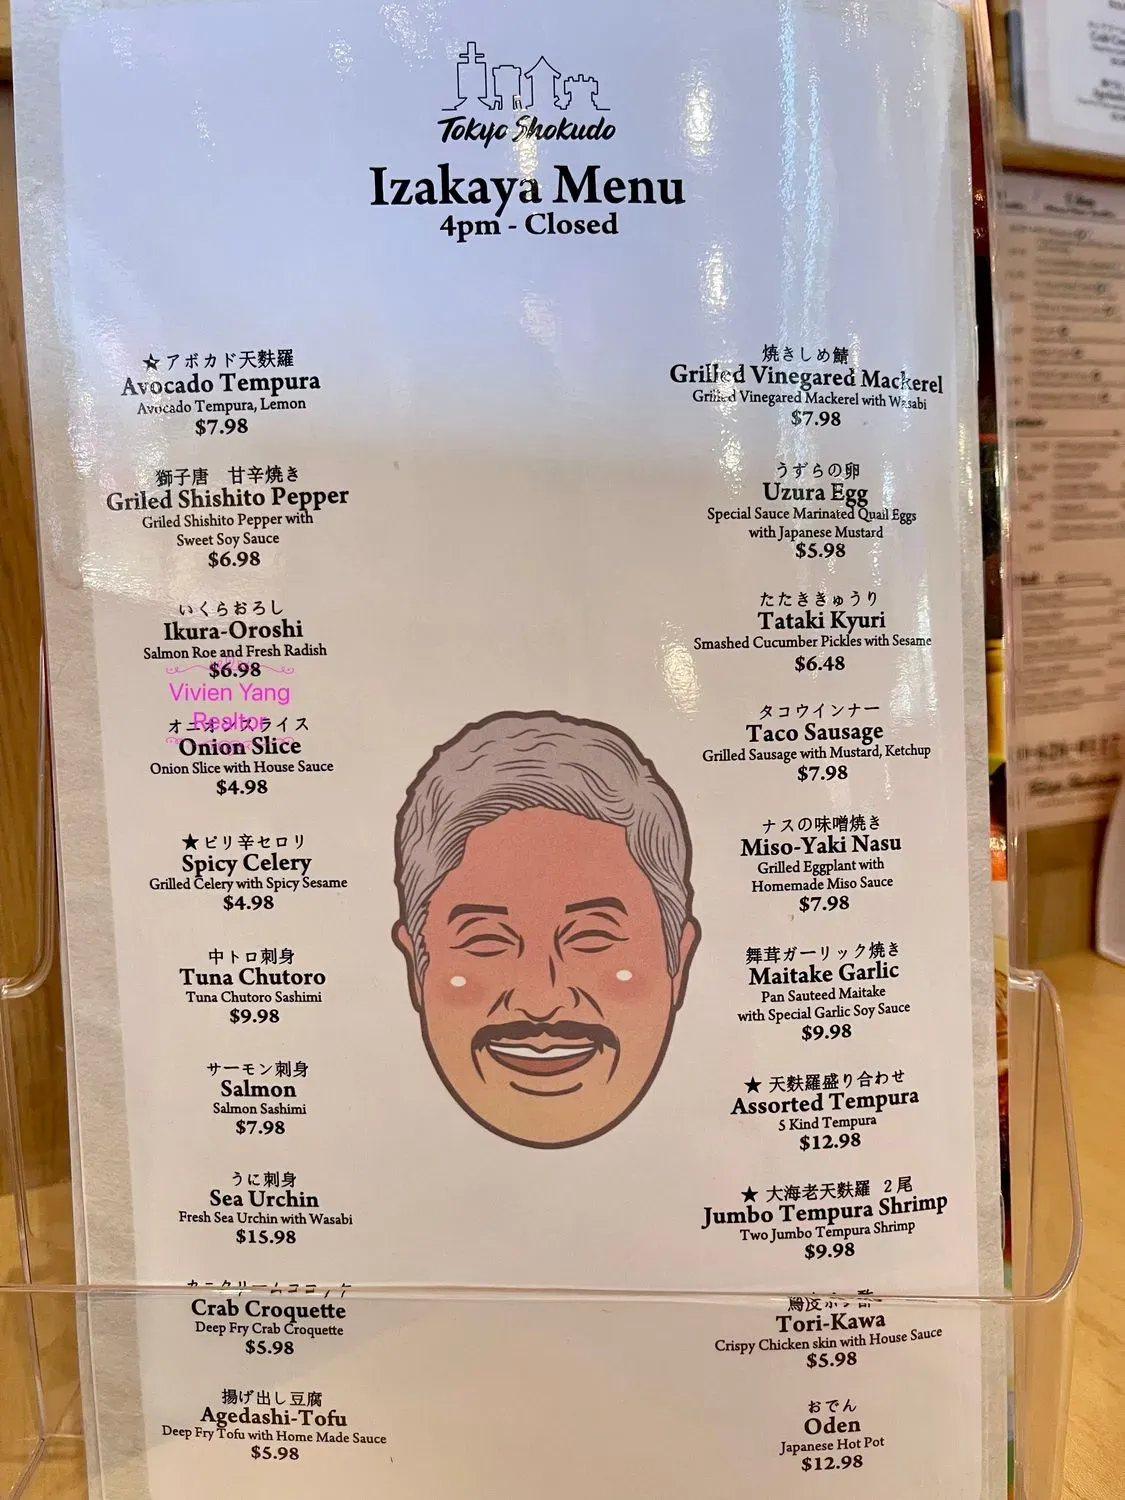 Tokyo Shokudo
Izakaya Menu
4pm - Closed
★アボカド天麩羅
Avocado Tempura
Avocado Tempura, Lemon
$7.98
獅子唐　甘辛焼き
Griled Shishito Pepper
Griled Shishito Pepper with
Sweet Soy Sauce
$6.98
いくらおろし
Ikura-Oroshi
Salmon Roe and Fresh Radish
$6.98
Vivien Yang
Realtor
オニオンスライス
Onion Slice
Onion Slice with House Sauce
$4.98
★ピリ辛セロリ
Spicy Celery
Grilled Celery with Spicy Sesame
$4.98
中トロ刺身
Tuna Chutoro
Tuna Chutoro Sashimi
$9.98
サーモン刺身
Salmon
Salmon Sashimi
$7.98
うに刺身
Sea Urchin
Fresh Sea Urchin with Wasabi
$15.98
Crab Croquette
Deep Fry Crab Croquette
$5.98
揚げ出し豆腐
Agedashi-Tofu
Deep Fry Tofu with Home Made Sauce
$5.98
焼きしめ鯖
Grilled Vinegared Mackerel
Grilled Vinegared Mackerel with Wasabi
$7.98
うずらの卵
Uzura Egg
Special Sauce Marinated Quail Eggs
with Japanese Mustard
$5.98
たたききゅうり
Tataki Kyuri
Smashed Cucumber Pickles with Sesame
$6.48
タコウインナー
Taco Sausage
Grilled Sausage with Mustard, Ketchup
$7.98
ナスの味噌焼き
Miso-Yaki Nasu
Grilled Eggplant with
Homemade Miso Sauce
$7.98
舞茸ガーリック焼き
Maitake Garlic
Pan Sauteed Maitake
with Special Garlic Soy Sauce
$9.98
★ 天麩羅盛り合わせ
Assorted Tempura
5 Kind Tempura
$12.98
★ 大海老天麩羅 2尾
Jumbo Tempura Shrimp
Two Jumbo Tempura Shrimp
$9.98
Tori-Kawa
Crispy Chicken skin with House Sauce
$5.98
おでん
Oden
Japanese Hot Pot
$12.98